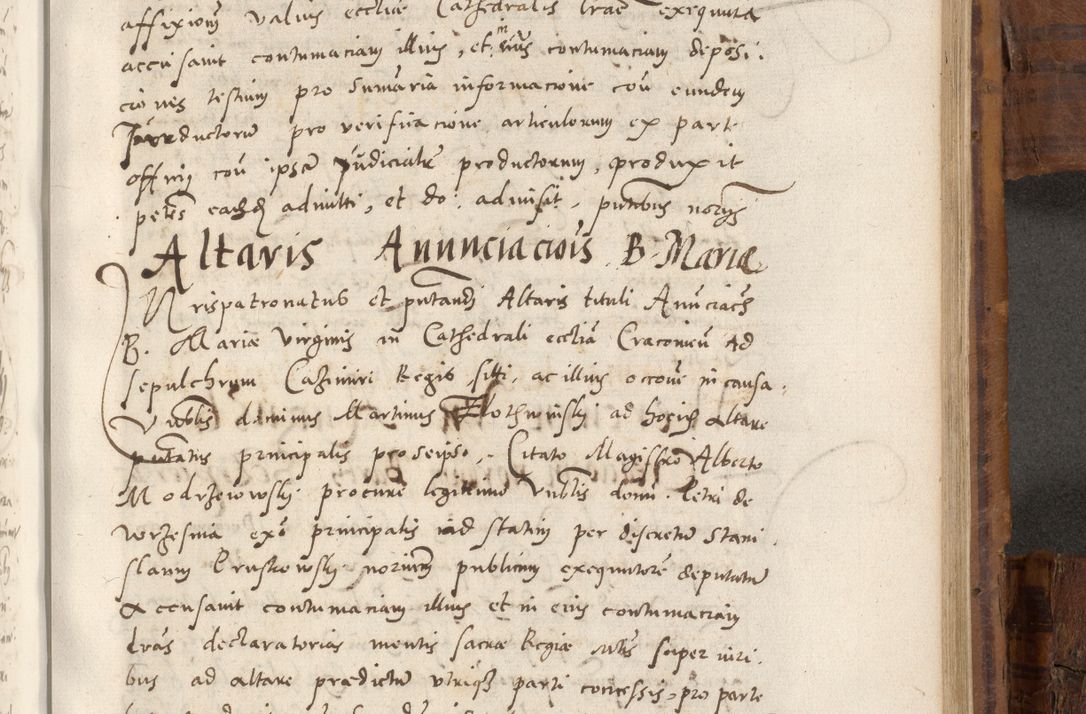 affixioni valvis eccliae Cathedralis lrae exequuta
accusavit contumaciam illius, et in eius contumaciam deposi.
ciones testium pro sumaria informacione coū eundem
Introductorū pro verificacione articulorum ex parte
officij coū ipsū Judicialr productorum, produxit
petēs easdē admitti, et do. admisit, pntibus
Altaris Anunciacōis B. Mariæ
Jurispatronatus et pntandi Altaris tituli Anūciacōis
B. Mariæ Virginis in Cathedrali ecclīa Cracovien ad
sepulchrum Cazimiri Regis siti, ac illius occōne in causa.
Vnblis dominus Martinus ad hoc altare
pntatus principalis pro seipso, Citato Magistro Alberto
Modrzeiowsky procure legittimo Vnblis domi. Petri de
Worzesnia exo principalis ad statim per discretū Stani.
slaum Pruskowsky notarium publicum exequutorē deputatū
accusavit contumaciam illius et in eius contumaciam
lrās declaratorias mentis sacræ Regiæ Mtis super iuri.
bus ad altare prædictū vtriqz parti concessis, pro parte